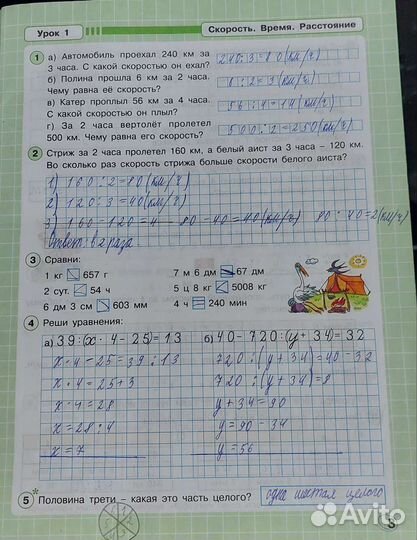 Урок 1
Скорость. Время. Расстояние
1 а) Автомобиль проехал 240 км за 240:3=80(км/ч)
3 часа. С какой скоростью он ехал?
б) Полина прошла 6 км за 2 часа. 6:2=3(км/ч)
Чему равна её скорость?
в) Катер проплыл 56 км за 4 часа. 56:4=14(км/ч)
С какой скоростью он плыл?
г) За 2 часа вертолёт пролетел 500:2=250(км/ч)
500 км. Чему равна его скорость?
2 Стриж за 2 часа пролетел 160 км, а белый аист за 3 часа – 120 км.
Во сколько раз скорость стрижа больше скорости белого аиста?
1) 160:2=80(км/ч)
2) 120:3=40(км/ч)
3) 160-120=4 - 80-40=40(км/ч) 80:40=2(км/ч)
Ответ: в 2 раза
3 Сравни:
1 кг 657 г 7 м 6 дм 67 дм
2 сут. 54 ч 5 ц 8 кг 5008 кг
6 дм 3 см 603 мм 4 ч = 240 мин
4 Реши уравнения:
а) 39:(x·4-25)=13 б) 40-720:(y+34)=32
x·4-25=39:13 720:(y+34)=40-32
x·4=25+3 720:(y+34)=8
x·4=28 y+34=90
x=28:4 y=90-34
x=7 y=56
5* Половина трети – какая это часть целого? одна шестая целого
Avito